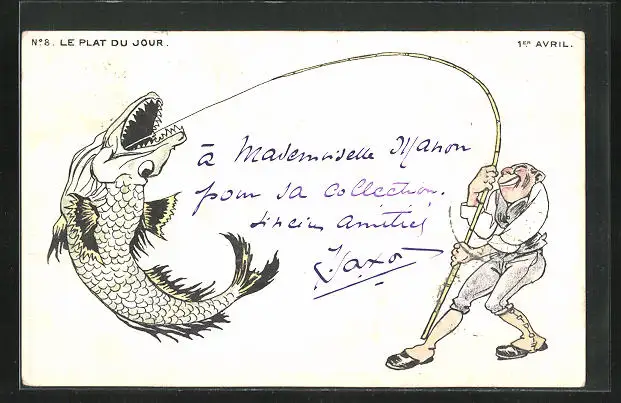 Nº 8. LE PLAT DU JOUR.
1ER AVRIL.
à Mademoiselle Manon
pour sa collection.
amitiés